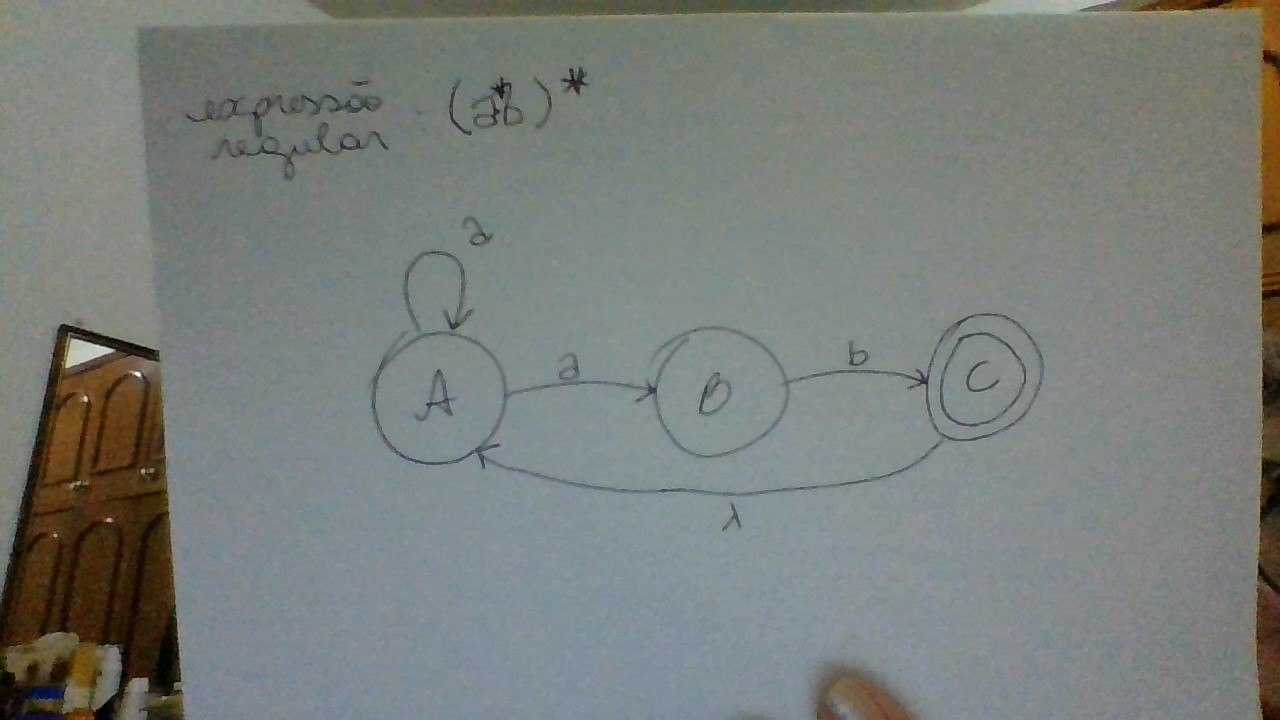 expressão : (a*b)*
regular
a
A a B b C
λ